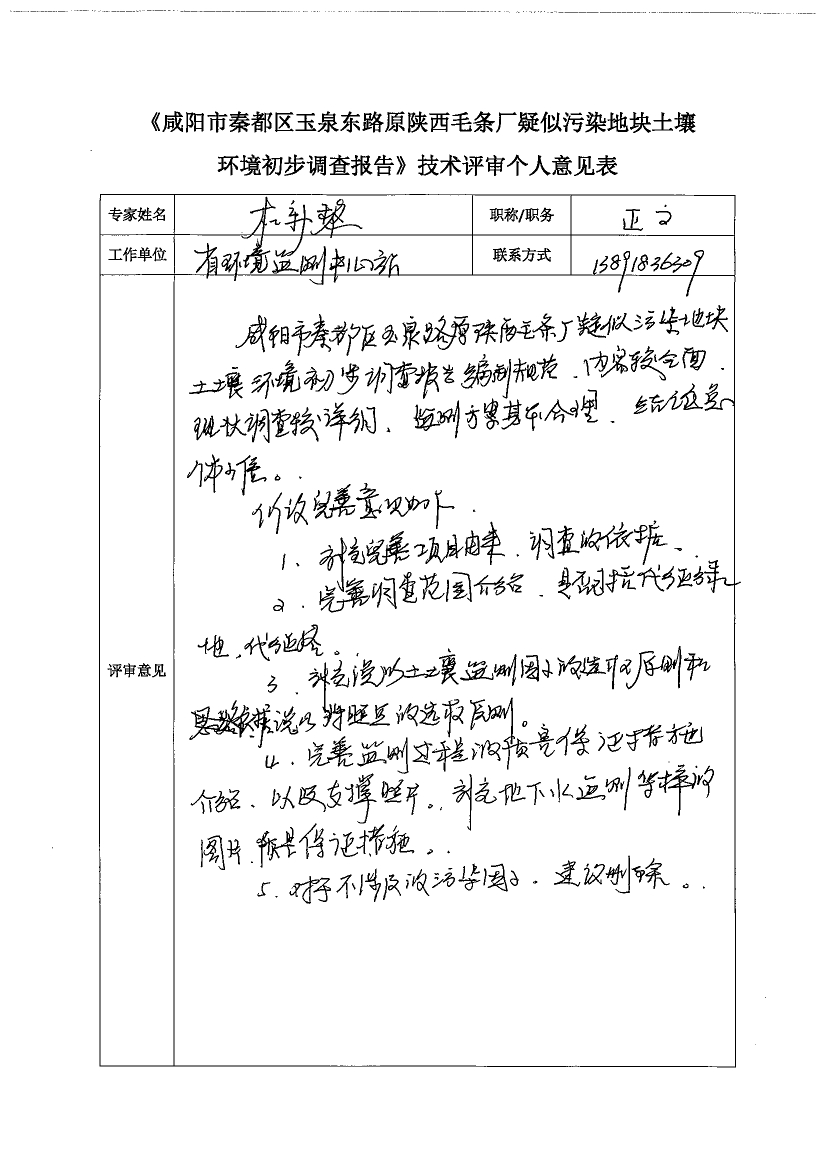 《咸阳市秦都区玉泉东路原陕西毛条厂疑似污染地块土壤
环境初步调查报告》技术评审个人意见表
专家姓名 职称/职务 正高
工作单位 省环境监测中心站 联系方式 13891836309
评审意见
咸阳市秦都区玉泉路原陕西毛条厂疑似污染地块
土壤环境初步调查报告编制规范、内容较全面、
现状调查较详细、监测方案基本合理、结论总
体可信。
建议完善意见如下
1、补充完善项目由来、调查的依据。
2、完善调查范围介绍、是否包括代征绿
地、代征路。
3、补充说明土壤监测因子的选取原则和
说明对照点的选取原则。
4、完善监测过程的质量保证措施
介绍、以及支撑照片。补充地下水监测采样的
图片、质量保证措施。
5、对于不涉及的污染因子、建议删除。